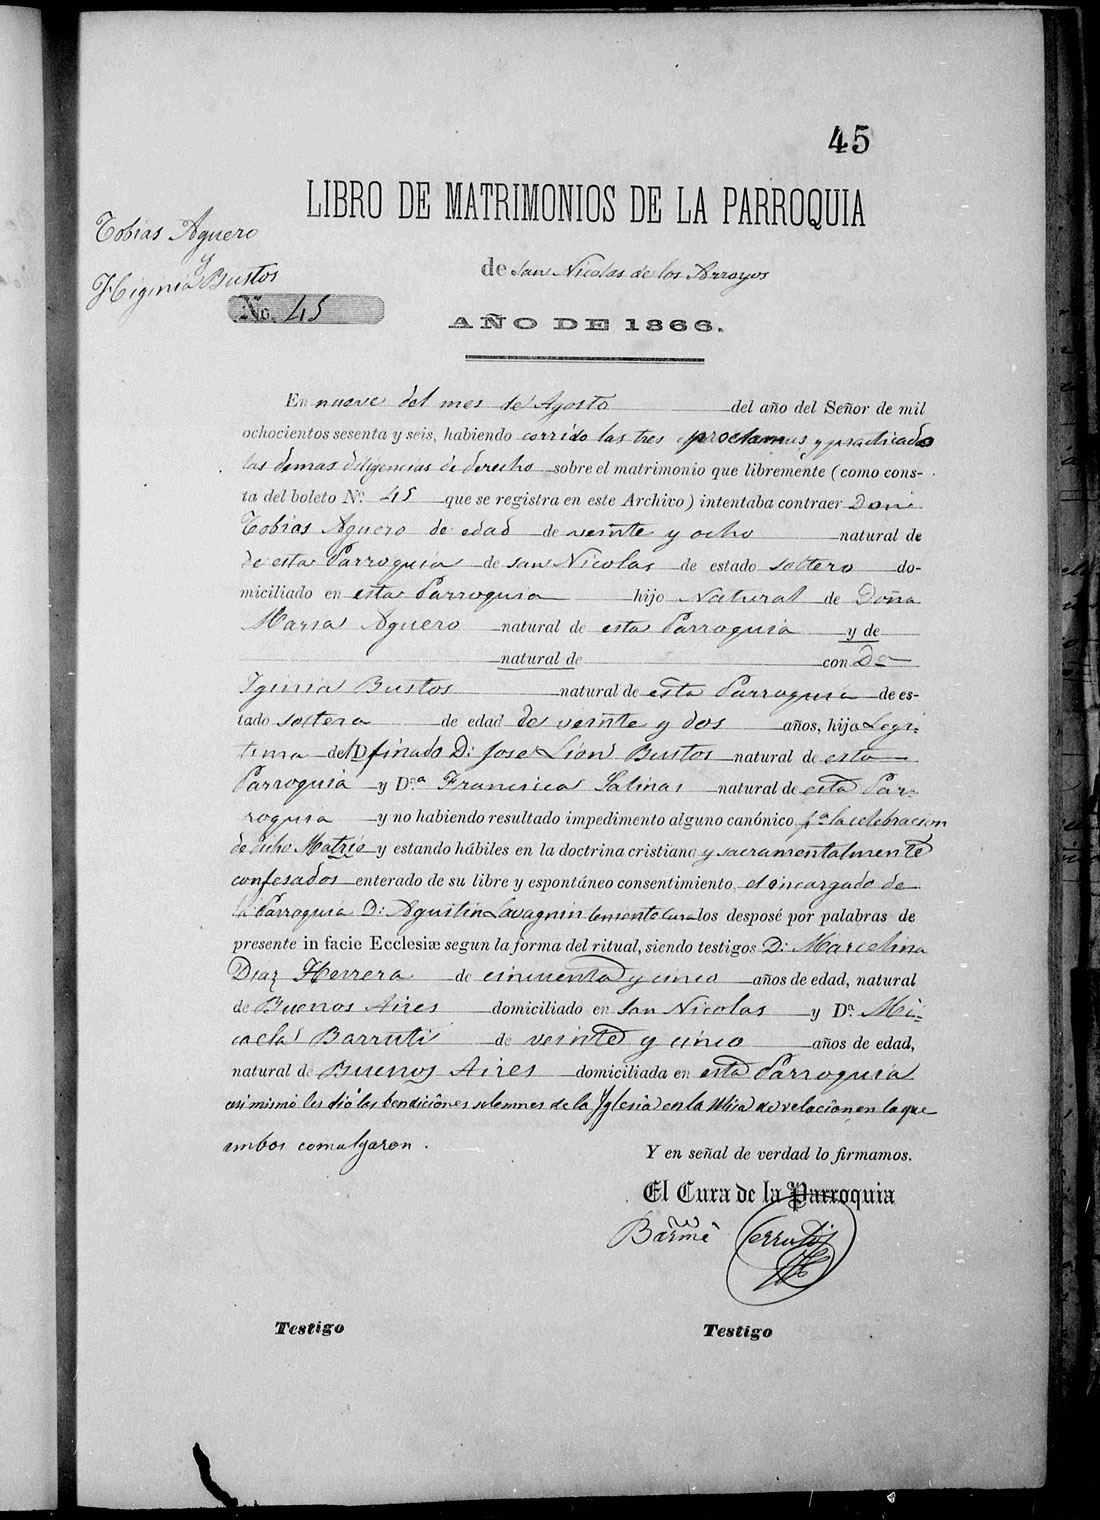 45
LIBRO DE MATRIMONIOS DE LA PARROQUIA
Tobias Aguero
y
Higinia Bustos
de San Nicolas de los Arroyos
No. 45
AÑO DE 1866.
En nueve del mes de Agosto del año del Señor de mil
ochocientos sesenta y seis, habiendo corrido las tres proclamas y practicado
las demas diligencias de derecho sobre el matrimonio que libremente (como cons-
ta del boleto Nº 45 que se registra en este Archivo) intentaba contraer Don
Tobias Aguero de edad de veinte y ocho natural de
de esta Parroquia de San Nicolas de estado soltero do-
miciliado en esta Parroquia hijo Natural de Doña
Maria Aguero natural de esta Parroquia y de
natural de con Da
Iginia Bustos natural de esta Parroquia de es-
tado soltera de edad de veinte y dos años, hija Legi-
tima del D finado D: Jose Lion Bustos natural de esta
Parroquia y D.ª Francisca Salinas natural de esta Par-
roquia y no habiendo resultado impedimento alguno canónico pa la celebracion
de dicho Matrio y estando hábiles en la doctrina cristiana y sacramentalmente
confesados enterado de su libre y espontáneo consentimiento, el encargado de
la Parroquia D: Agustin Lavagnin teniente cura los desposé por palabras de
presente in facie Ecclesiæ segun la forma del ritual, siendo testigos D: Marcelina
Diaz Herrera de cincuenta y cinco años de edad, natural
de Buenos Aires domiciliado en San Nicolas y Dª Mi-
caela Barruti de veinte y cinco años de edad,
natural de Buenos Aires domiciliada en esta Parroquia
asi mismo les dió las bendiciones solemnes de la Yglesia en la Misa de velacion en la que
ambos comulgaron.
Y en señal de verdad lo firmamos.
El Cura de la Parroquia
Barmé Cerruti
Testigo Testigo